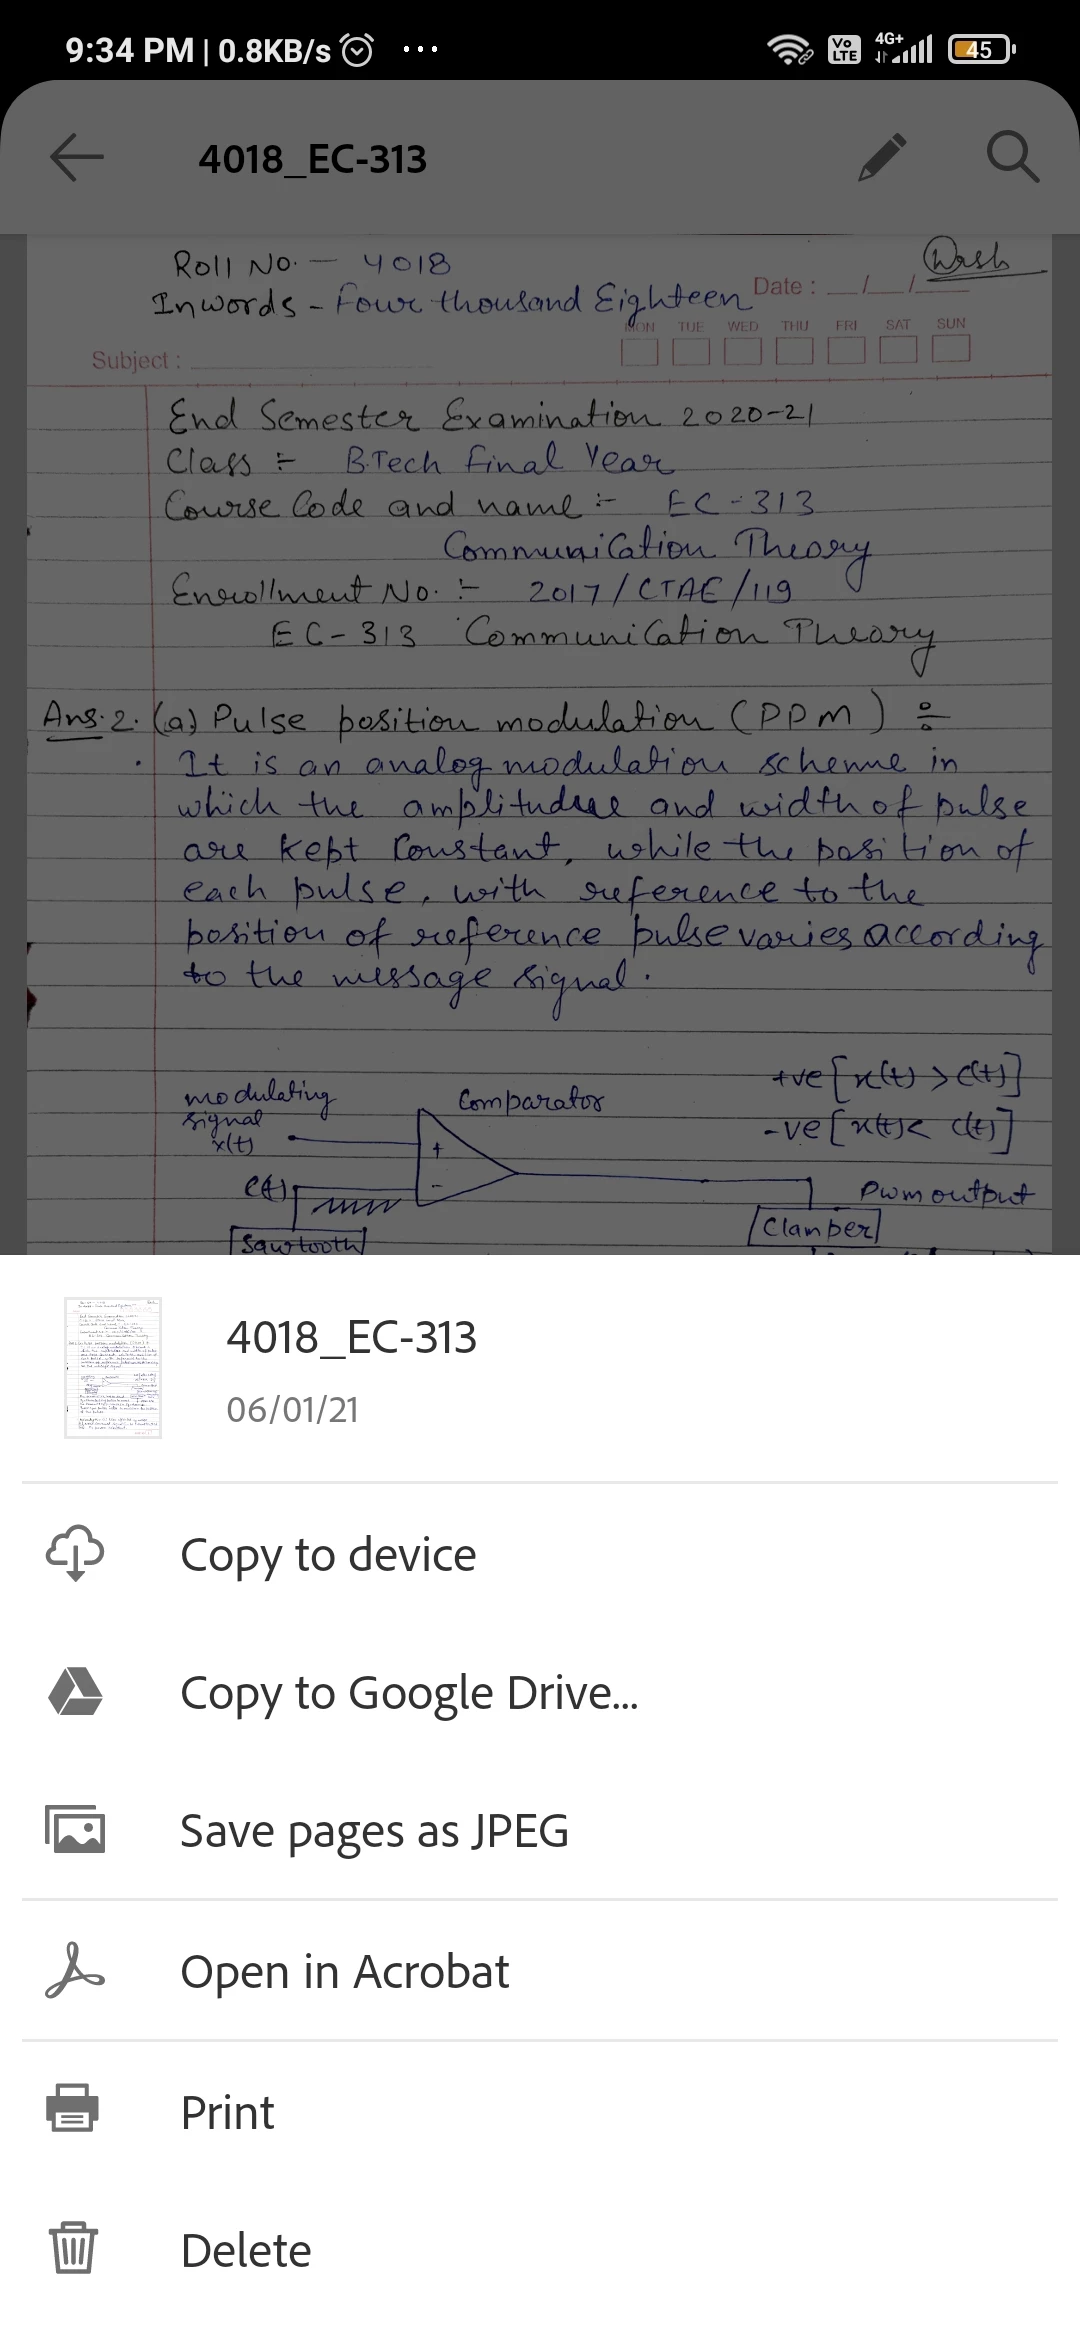 9:34 PM | 0.8KB/s ...
Vo LTE 4G+ 45
4018_EC-313
Roll No. — 4018
Inwords - Four thousand Eighteen
Date : __/__/____
MON TUE WED THU FRI SAT SUN
Subject :
End Semester Examination 2020-21
Class :- B.Tech final Year
Course Code and name :- EC-313
Communication Theory
Enrollment No. :- 2017/CTAE/119
EC-313 Communication Theory
Ans.2. (a) Pulse position modulation (PPM) ÷
• It is an analog modulation scheme in
which the amplitude and width of pulse
are kept Constant, while the position of
each pulse, with reference to the
position of reference pulse varies according
to the message signal.
modulating
signal
x(t)
Comparator
+ve [x(t) > c(t)]
-ve [x(t) < c(t)]
+
-
c(t)
Pwm output
Clamper
Sawtooth
4018_EC-313
06/01/21
Copy to device
Copy to Google Drive...
Save pages as JPEG
Open in Acrobat
Print
Delete